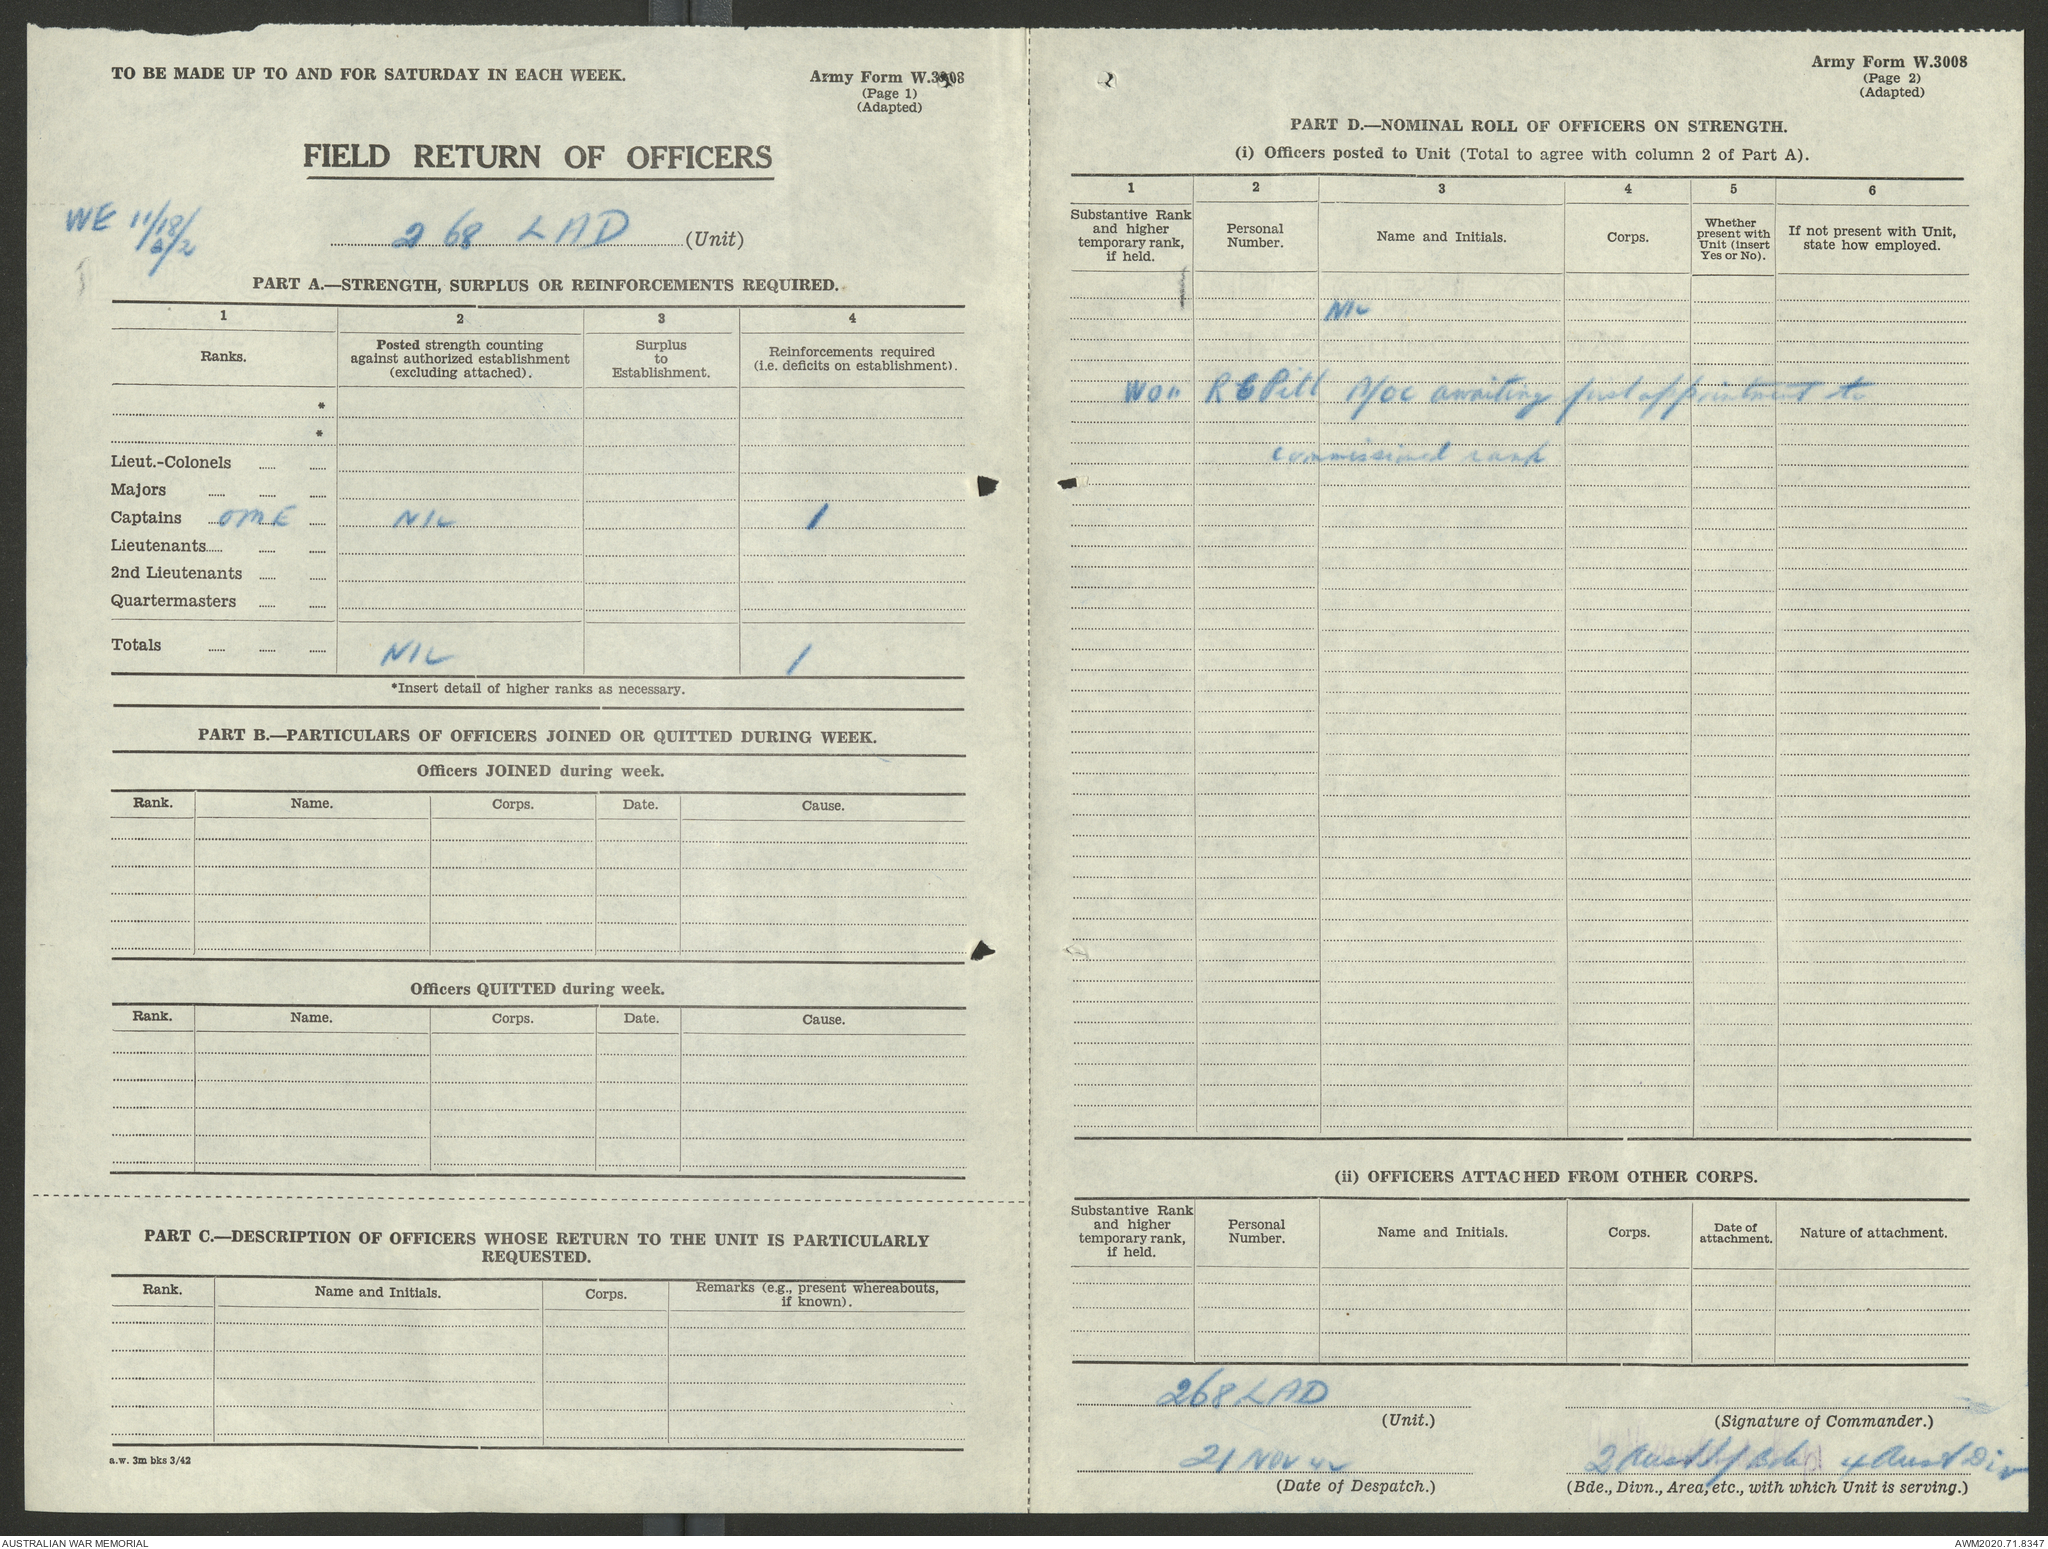 TO BE MADE UP TO AND FOR SATURDAY IN EACH WEEK.
Army Form W.3008
(Page 1)
(Adapted)
FIELD RETURN OF OFFICERS
WE 11/18/
2/2
268 LAD (Unit)
PART A.—STRENGTH, SURPLUS OR REINFORCEMENTS REQUIRED.
1 2 3 4
Ranks.
Posted strength counting
against authorized establishment
(excluding attached).
Surplus
to
Establishment.
Reinforcements required
(i.e. deficits on establishment).
*
*
Lieut.-Colonels
Majors
Captains OME NIL 1
Lieutenants
2nd Lieutenants
Quartermasters
Totals NIL 1
*Insert detail of higher ranks as necessary.
PART B.—PARTICULARS OF OFFICERS JOINED OR QUITTED DURING WEEK.
Officers JOINED during week.
Rank. Name. Corps. Date. Cause.
Officers QUITTED during week.
Rank. Name. Corps. Date. Cause.
PART C.—DESCRIPTION OF OFFICERS WHOSE RETURN TO THE UNIT IS PARTICULARLY
REQUESTED.
Rank. Name and Initials. Corps.
Remarks (e.g., present whereabouts,
if known).
a.w. 3m bks 3/42
Army Form W.3008
(Page 2)
(Adapted)
PART D.—NOMINAL ROLL OF OFFICERS ON STRENGTH.
(i) Officers posted to Unit (Total to agree with column 2 of Part A).
1 2 3 4 5 6
Substantive Rank
and higher
temporary rank,
if held.
Personal
Number.
Name and Initials.
Corps.
Whether
present with
Unit (insert
Yes or No).
If not present with Unit,
state how employed.
NIL
WOII R E Pitt A/OC awaiting first appointment to
commissioned rank
(ii) OFFICERS ATTACHED FROM OTHER CORPS.
Substantive Rank
and higher
temporary rank,
if held.
Personal
Number.
Name and Initials.
Corps.
Date of
attachment.
Nature of attachment.
268 LAD
(Unit.)
(Signature of Commander.)
21 NOV 42
(Date of Despatch.)
2 Bde 4 Aust Div
(Bde., Divn., Area, etc., with which Unit is serving.)
AUSTRALIAN WAR MEMORIAL
AWM2020.71.8347